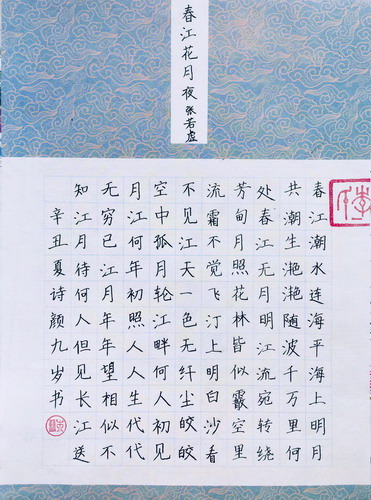 春江花月夜 张若虚
春江潮水连海平海上明月
共潮生滟滟随波千万里何
处春江无月明江流宛转绕
芳甸月照花林皆似霰空里
流霜不觉飞汀上明白沙看
不见江天一色无纤尘皎皎
空中孤月轮江畔何人初见
月江何年初照人人生代代
无穷已江月年年望相似不
知江月待何人但见长江送
辛丑夏诗颜九岁书